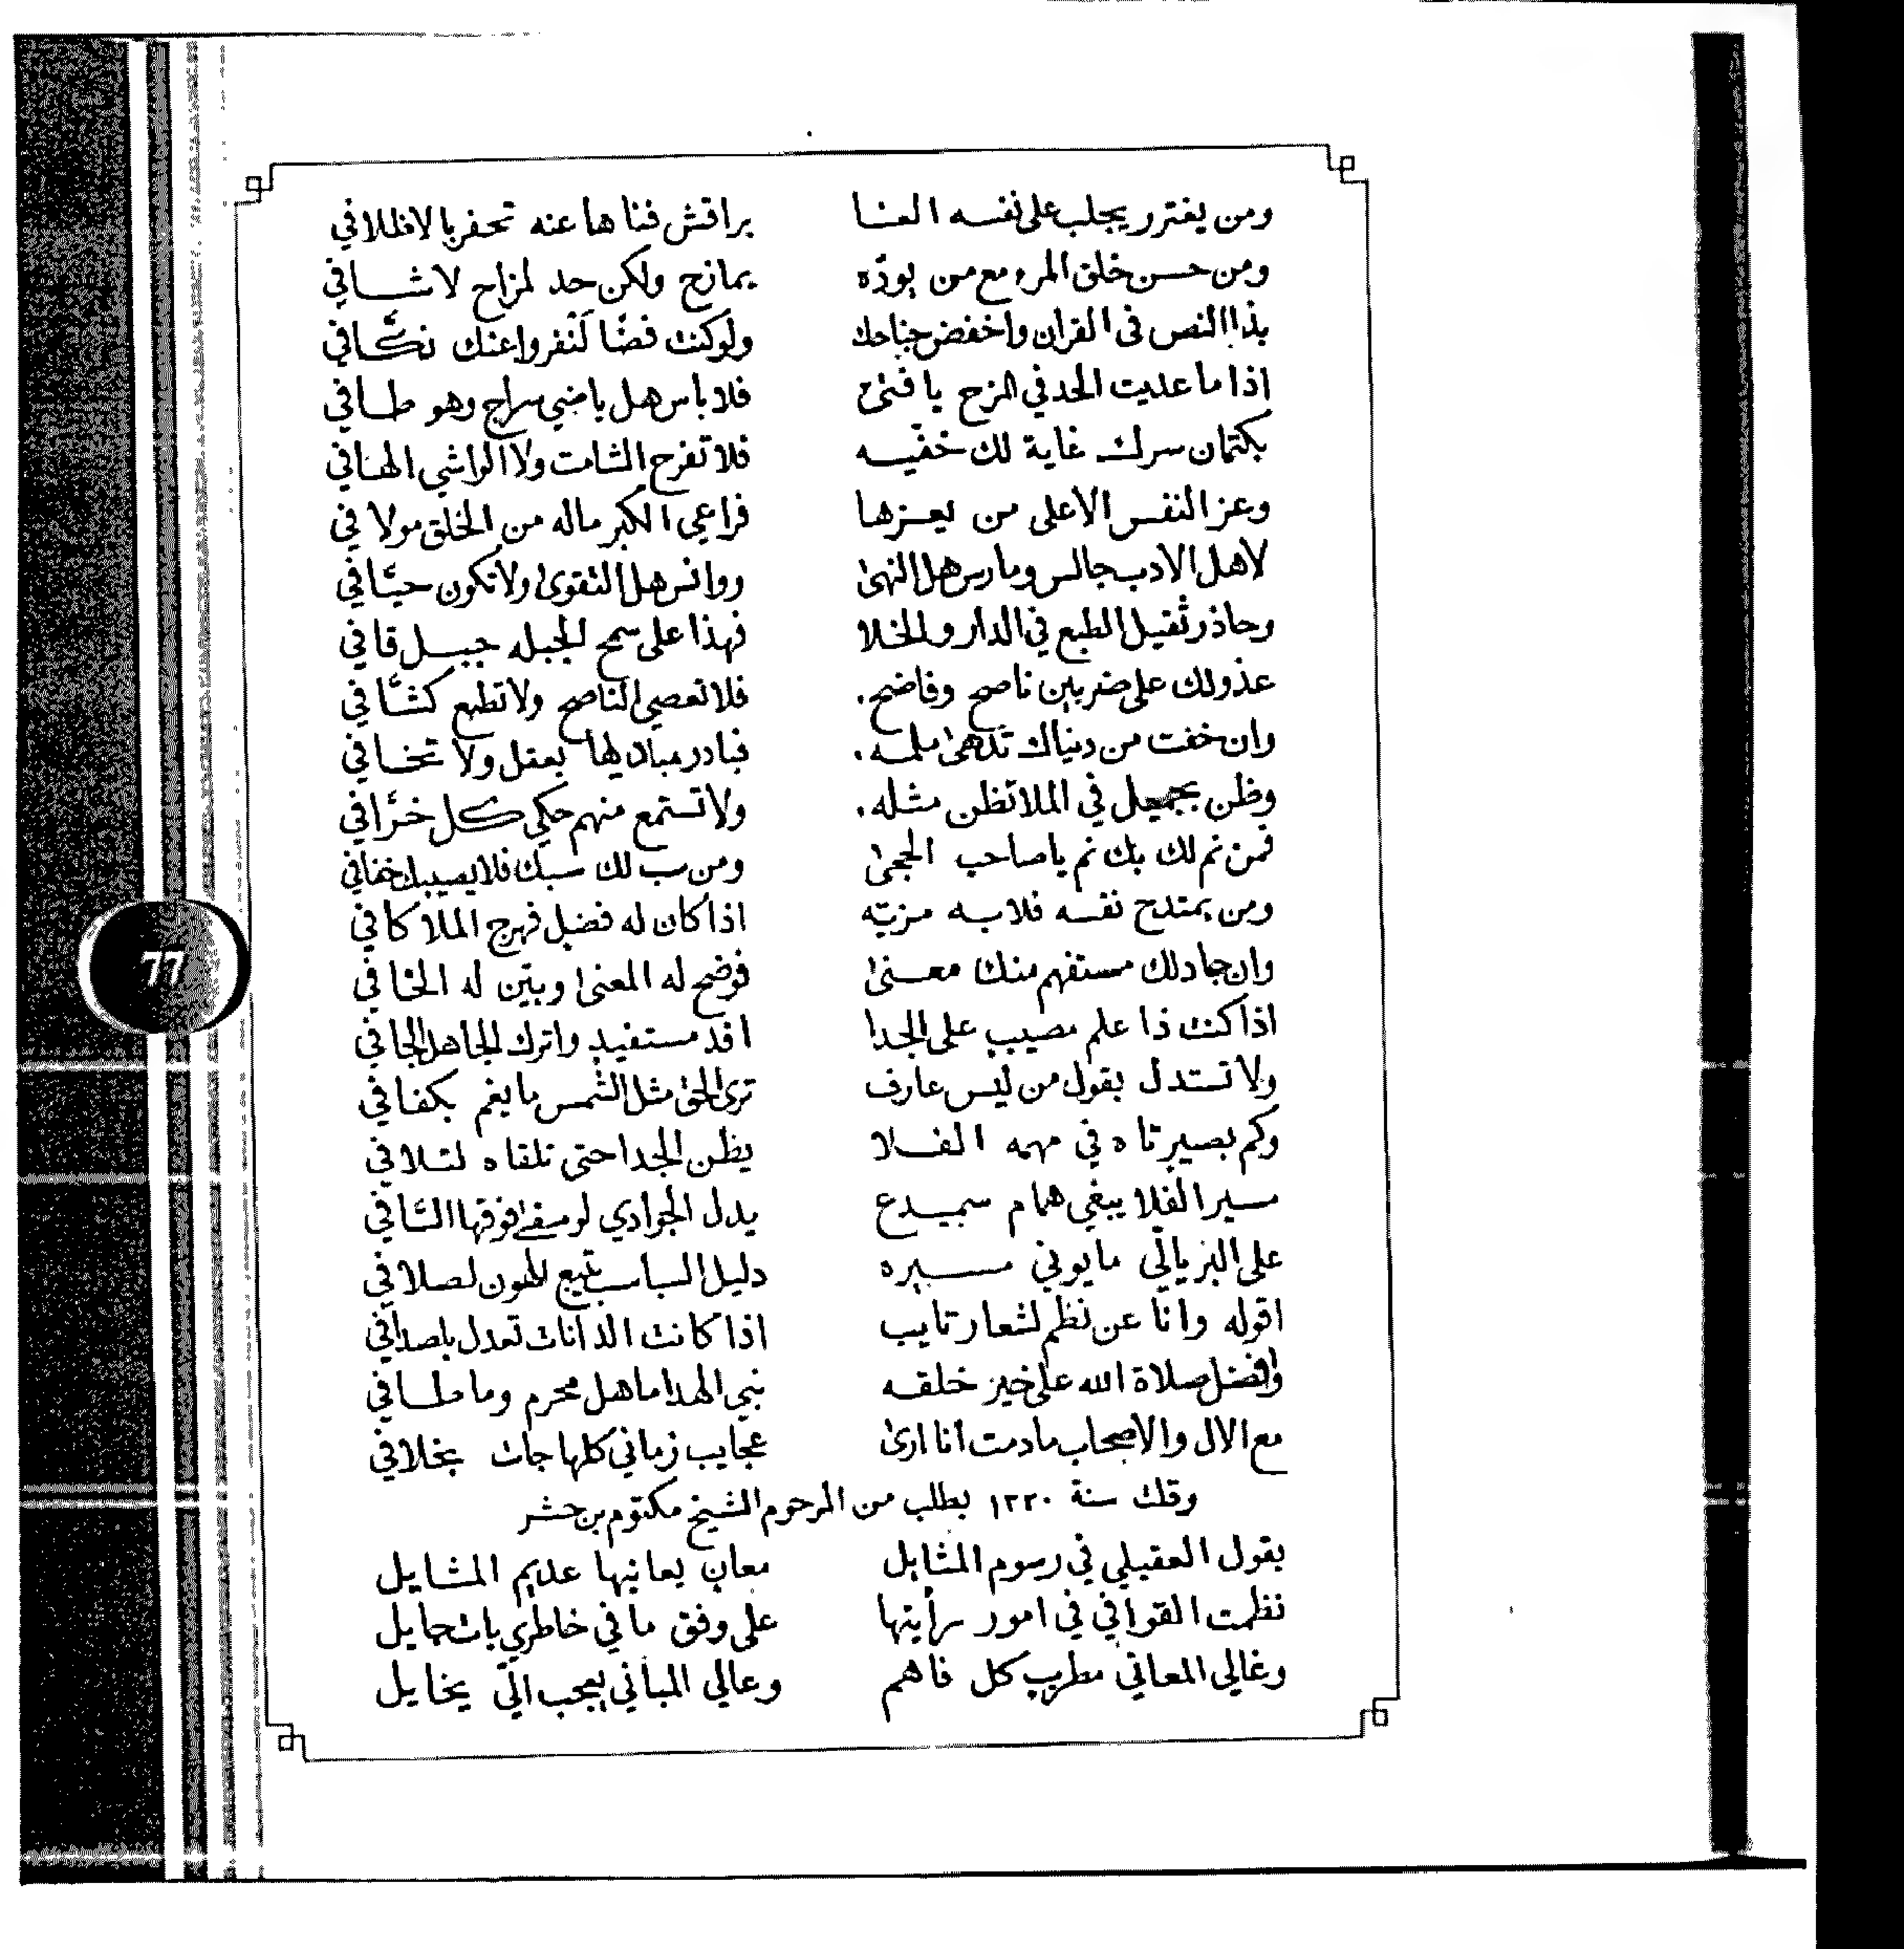 ومن يغترر يجلب على نفسه العنا براقش فنا ها عنه تحفر بالاظلافي
ومن حسن خلق المرء مع من يودّه يمازح ولكن حد لمزاح لاشافي
بذا النص في القران واخفض جناحك ولو كنت فضًا لنفروا عنك نكَّافي
اذا ما عديت الحد في المزح يا فتى فلا باس هل ياضي سراج وهو طافي
بكتمان سرك غاية لك خفيّه فلا تفرح الشامت ولا الواشي الهافي
وعز النفس الاعلى من يعزها فراعي الكبر ماله من الخلق مولافي
لاهل الادب جالس ومارس هل النهى ووانس هل التقوى ولا تكون حيّافي
وحاذر ثقيل الطبع في الدار والخلا فهذا على سمح الجبله جبل قافي
عذولك على ضربين ناصح وفاضح. فلا تعصي الناصح ولا تطيع كشَّافي
وان خفت من دنياك تدهى ملمه. فبادر مباديها بعقل ولا تخافي
وظن بجميل في الملا تظن مثله. ولا تستمع منهم حكي كل خرَّافي
فمن نم لك بك نم يا صاحب الحجى ومن سب لك سبك فلا يصيبك خفافي
ومن يمتدح نفسه فلا به مزيّه اذا كان له فضيل فهرج الملا كافي
وان جادلك مستفهم منك معنى فوضح له المعنى وبيّن له الخافي
اذا كنت ذا علم مصيب على الجدا افد مستفيد واترك الجاهل الجافي
ولا تستدل بقول من ليس عارف ترى الحق مثل الشمس ما يغم بكفافي
وكم بصير تاه في مهمه الفلا يظن الجدا حتى تلقاه لتلافي
سير الفلا يبغي همام سميدع يدل الجوادي لو سفى فوقها السَّافي
على البر يالّي ما يوني مسيره دليل السباسب تيبع الهون لصلافي
اقوله وانا عن نظم لشعار تايب اذا كانت الدانات تعدل باصدافي
وافضل صلاة الله على خير خلقه نبي الهدا ما هل محرم وما طافي
مع الال والاصحاب ما دمت انا ارى عجايب زماني كلها جات بخلافي
وقلت سنة ١٢٢٠ بطلب من المرحوم الشيخ مكتوم بن حشر
يقول العقيلي في رسوم المثايل معان يعانيها عديم المشايل
نظمت القوافي في امور رأيتها على وفق ما في خاطري بات جايل
وغالي المعاني مطرب كل فاهم وعالي المباني يعجب الّي يخايل
٦٦